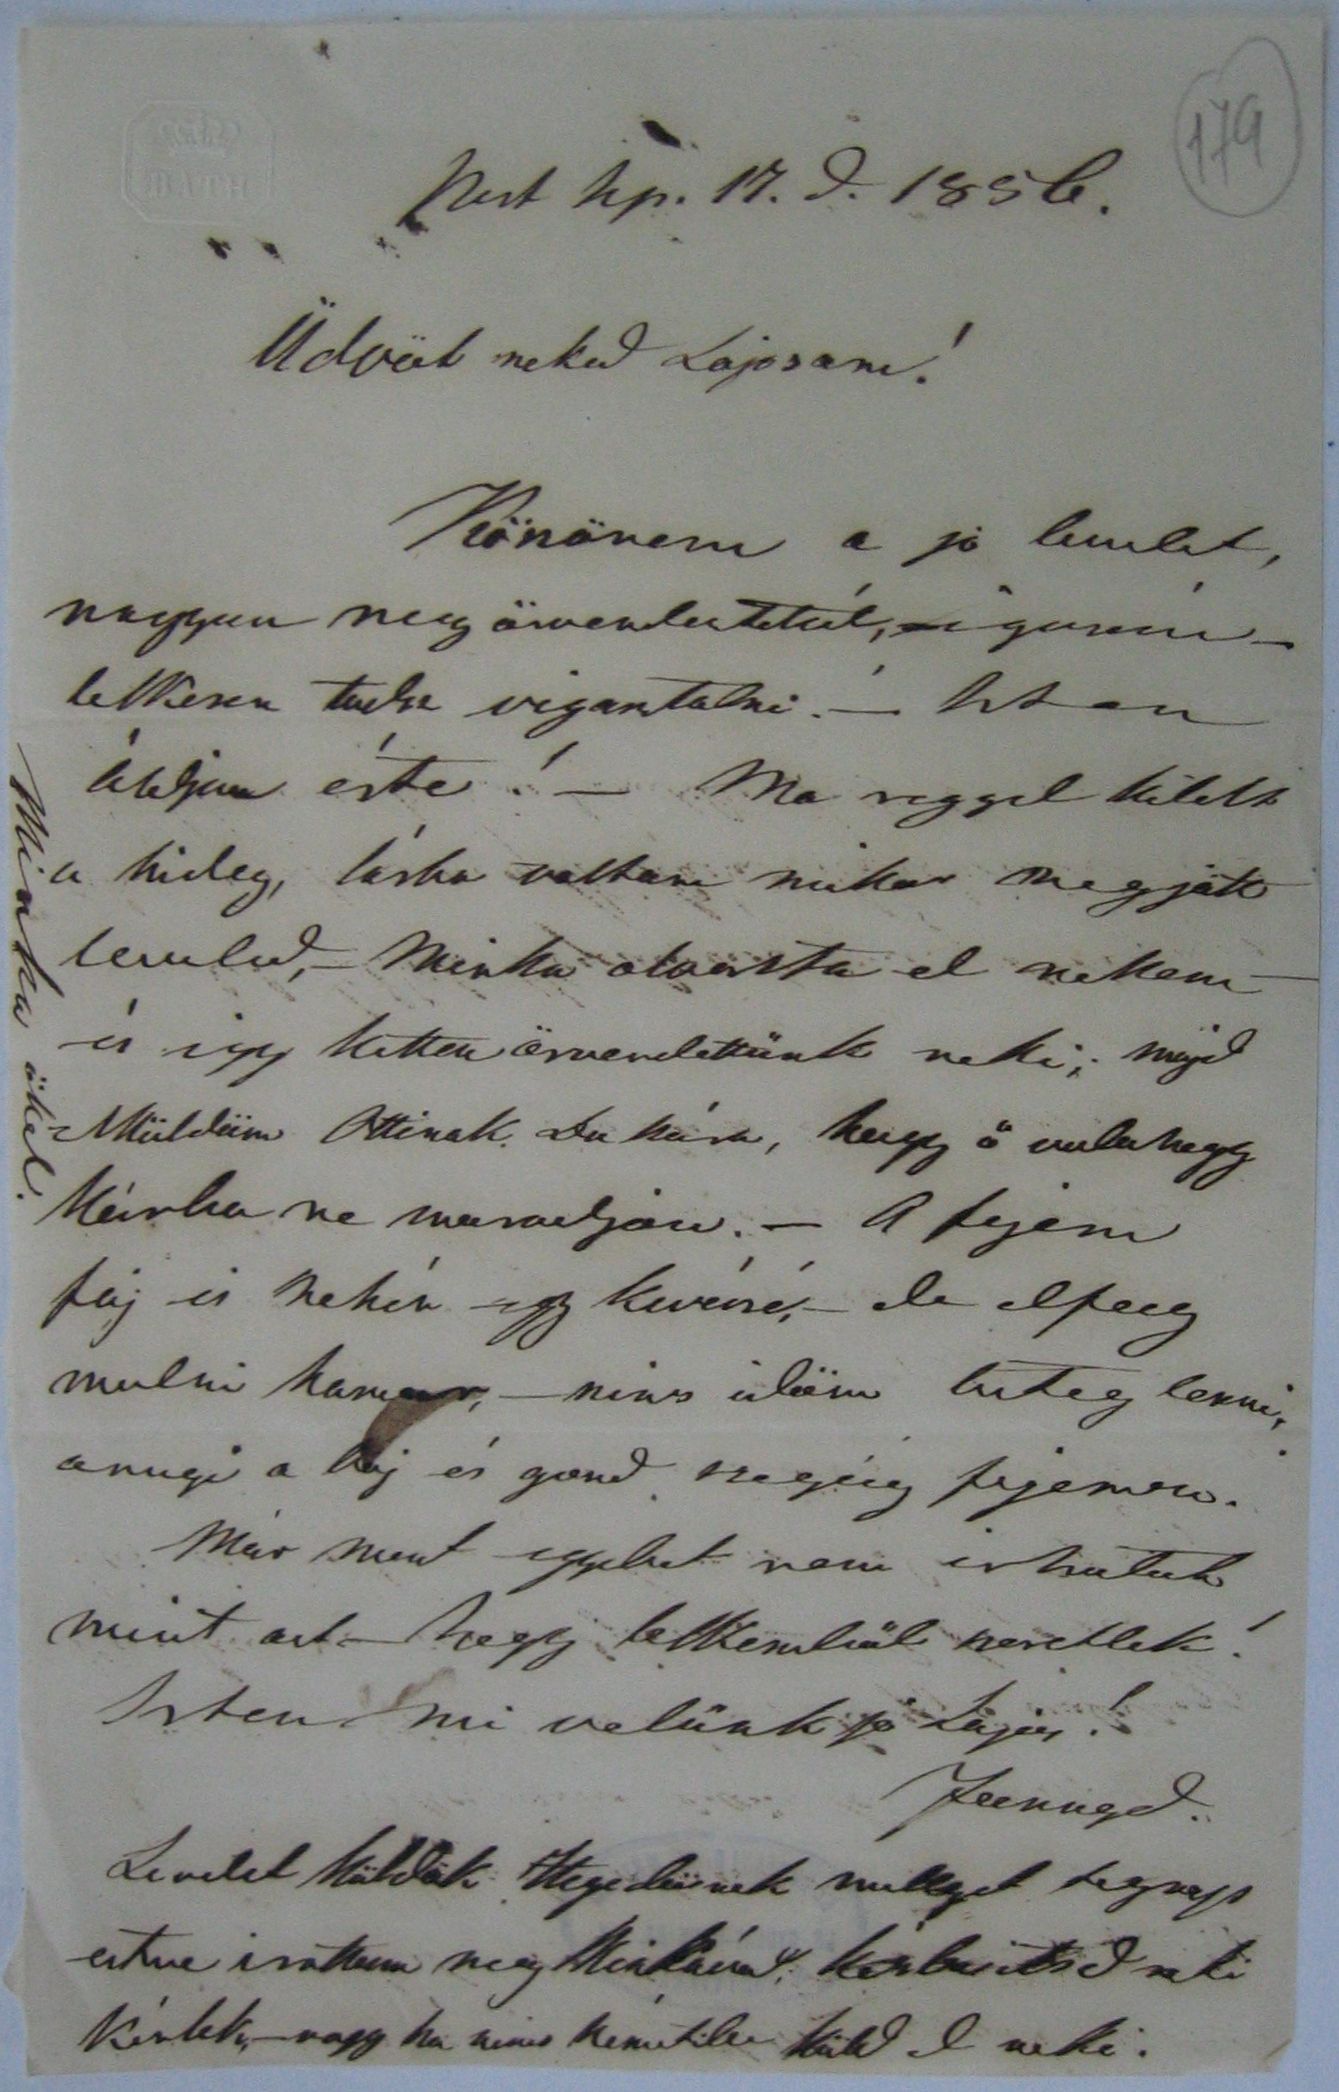 179
Pest sep. 17. d. 1856.
Üdvöt neked Lajosam!
Köszönem a jó levelet,
nagyon meg örvendeztettél, igazán
lelkesen tudsz vigasztalni. – Isten
áldjon érte! – Ma reggel kilelt
a hideg, lázba voltam mikor megjött
leveled, – Minka olvasta el nekem –
és igy ketten örvendettünk neki; majd
elküldöm Ottinak Dukára, hogy ő valahogy
kárba ne maradjon. – A fejem
fáj és nehéz egy kevéssé, – de el fog
mulni hamar, – nincs időm beteg lenni,
annyi a baj és gond szegény fejemen.
Már most egyebet nem irhatok
mint azt – hogy lelkemből szeretlek!
Isten mi velünk jó Lajos!
Zsennyed.
Levelet küldök Hegedüsnek mellyet tegnap
estve irattam meg Minkával, kézbesitsd neki
kérlek, – vagy ha nincs Németiben küldd el neki.
Minka ölel.